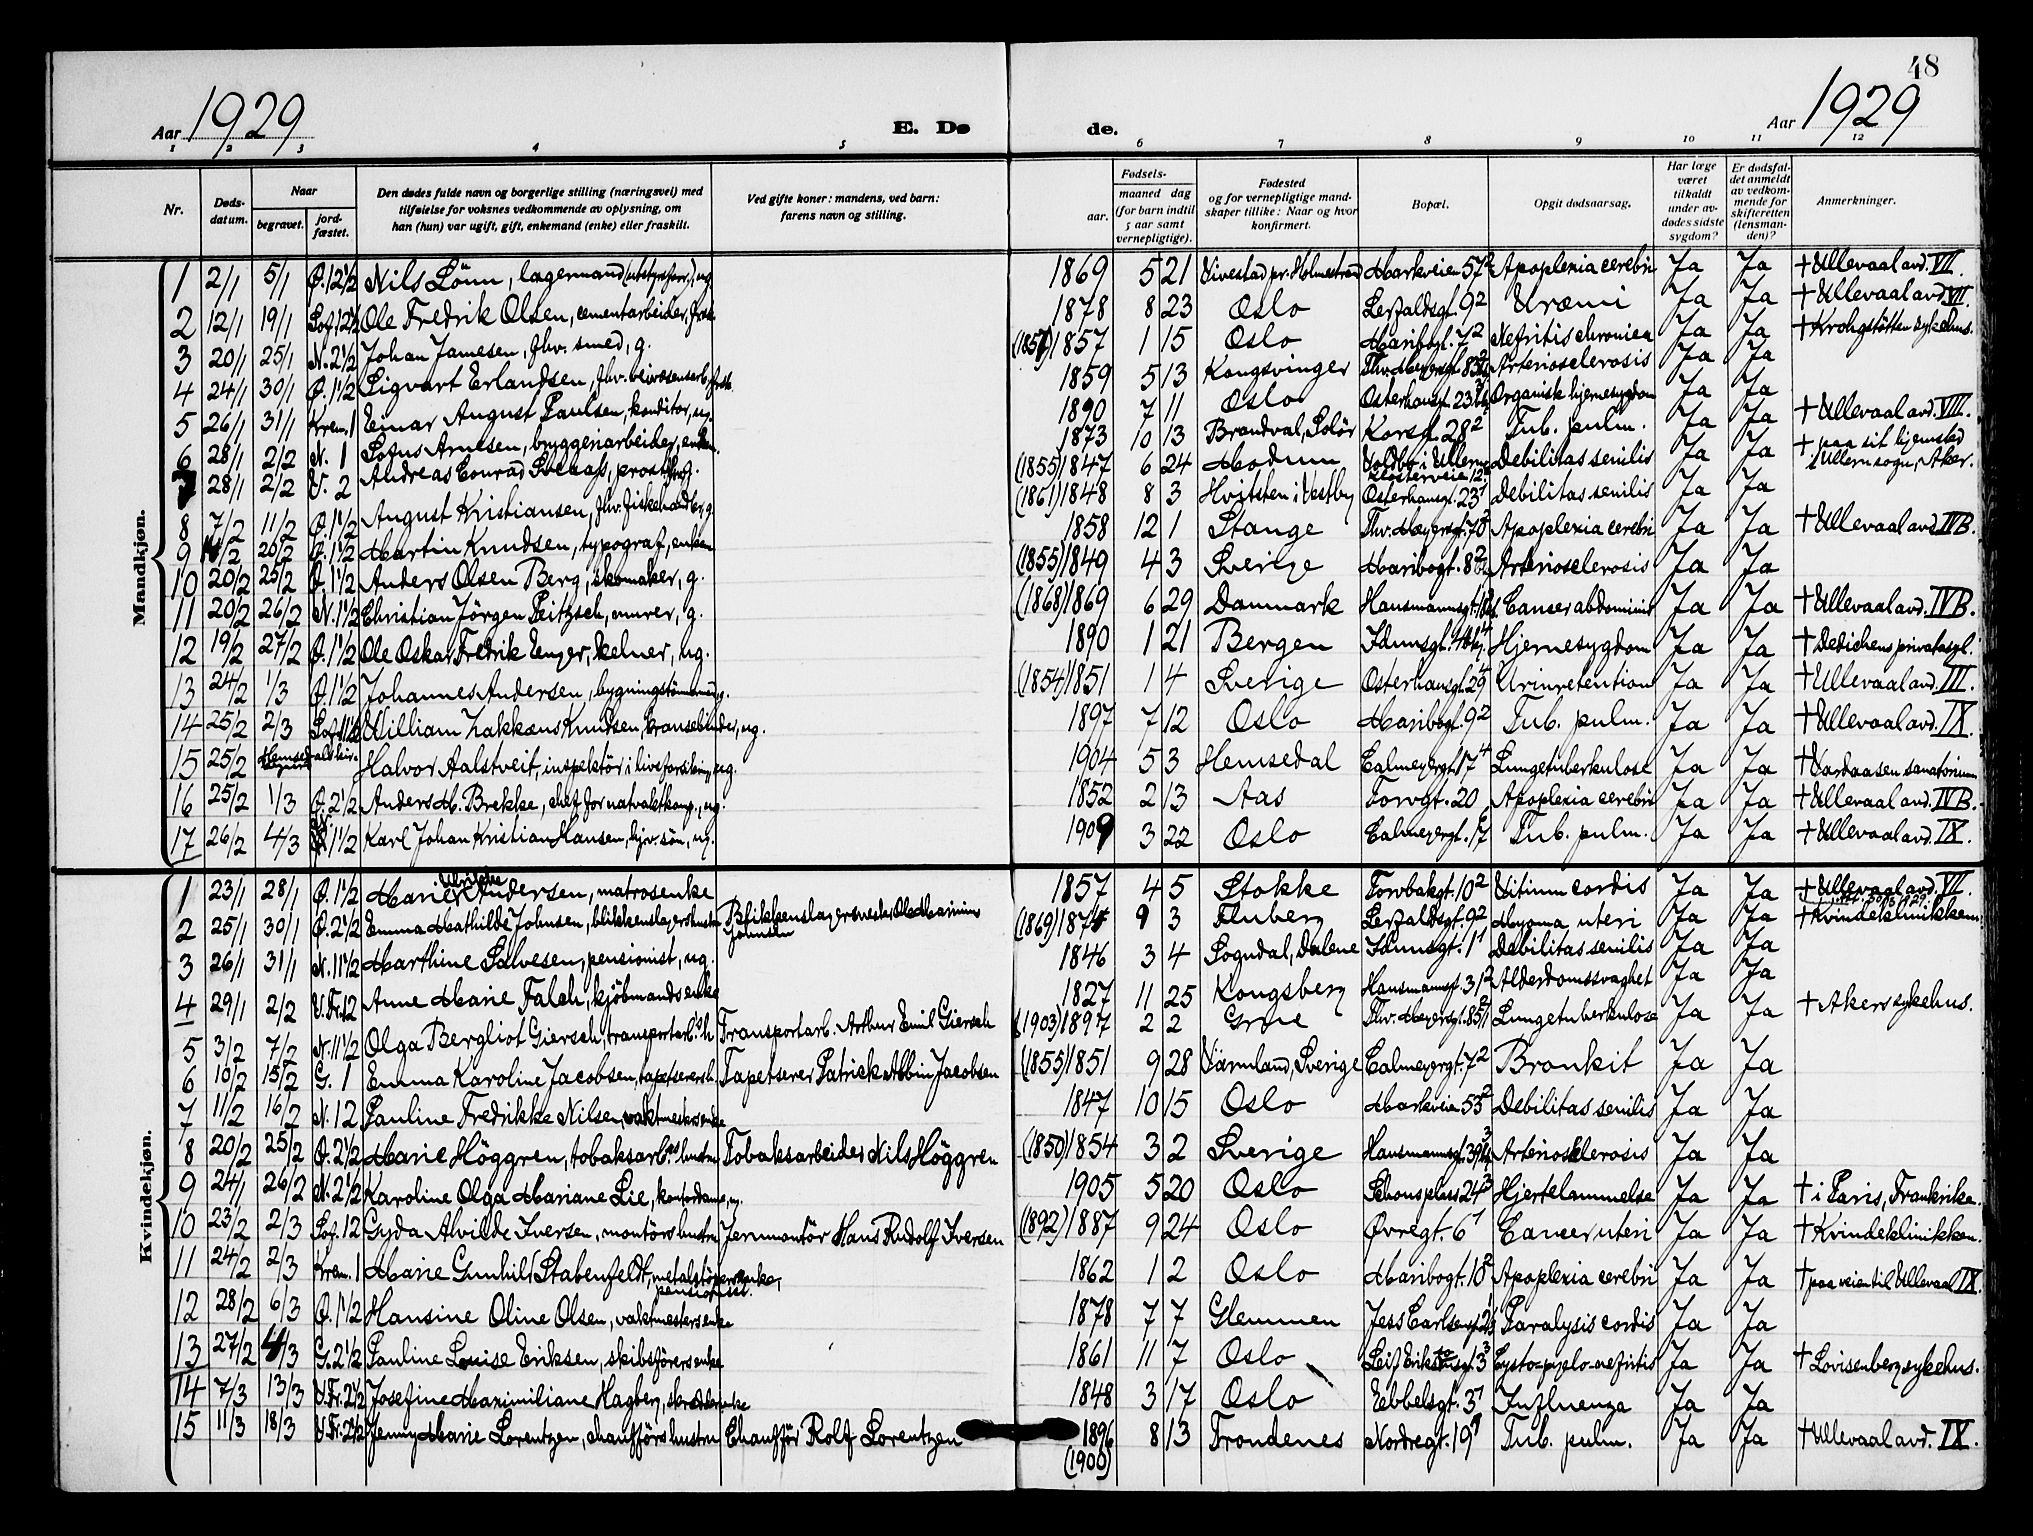 48
Aar 1929
E. Dø
de.
Aar 1929
1 2 3 4 5 6 7 8 9 10 11 12
Nr.
Døds-datum.
Naar
begravet.
jord-fæstet.
Den dødes fulde navn og borgerlige stilling (næringsvei) med tilføielse for voksnes vedkommende av oplysning, om han (hun) var ugift, gift, enkemand (enke) eller fraskilt.
Ved gifte koner: mandens, ved barn: farens navn og stilling.
Fødsels-
aar.
maaned dag (for barn indtil 5 aar samt vernepligtige).
Fødested og for vernepligtige mand-skaper tillike: Naar og hvor konfirmert.
Bopæl.
Opgit dødsaarsag.
Har læge været tilkaldt under av-dødes sidste sygdom?
Er dødsfal-det anmeldt av vedkom-mende for skifteretten (lensman-den)?
Anmerkninger.
Mandkjøn.
1 2/1 5/1 Ø. 12 1/2 Nils Lönn, lagermand ug. 1869 5 21 Vivestad pr. Holmestrand Markveien 57 2 Apoplexia cerebri Ja Ja † Ullevaal avd. VII.
2 12/1 19/1 Sof. 12 1/2 Ole Fredrik Olsen, cementarbeider, 1878 8 23 Oslo Leirfaldsgt. 9 2 Uræmi Ja Ja † Ullevaal avd. VII.
3 20/1 25/1 N. 2 1/2 Johan Jamesen, fhv. smed, g. 1857 1 15 Oslo Maribogt. 7 2 Nefritis chronica Ja Ja † Krohgstötten sykehus.
4 24/1 30/1 Ø. 1 1/2 Sigvart Erlandsen, fhv. 1859 5 13 Kongsvinger Thv. Meyersgt. Arteriosclerosis Ja Ja
5 26/1 31/1 Krem. 1 Einar August Paulsen, konditor, ug. 1890 7 11 Oslo Osterhausgt. 23 Organisk hjernesygdom Ja Ja
6 28/1 2/2 N. 1 Sofus Arnesen, bryggeriarbeider, enkem. 1873 10 13 Brandval, Solör Korsgt. 28 2 Tub. pulm. Ja Ja † Ullevaal avd. VIII.
7 28/1 2/2 V. 2 Andreas Conrad prost, g. (1855) 1847 6 24 Modum i Ullern, Debilitas senilis Ja Ja † paa sit hjemsted i Ullern sogn, Aker.
8 7/2 11/2 Ø. 1 1/2 August Kristiansen, fhv. fiskehandler, g. (1861) 1848 8 3 Hvitsten i Vestby Osterhausgt. 23 1 Debilitas senilis Ja Ja
9 20/2 Ø. 1 1/2 Martin Knudsen, typograf, enkem. 1858 12 1 Stange Thv. Meyersgt. Apoplexia cerebri Ja Ja † Ullevaal avd. IVB.
10 20/2 25/2 Ø. 1 1/2 Anders Olsen Berg, skomaker, g. (1855) 1849 4 3 Sverige Maribogt. 8 Arteriosclerosis Ja Ja
11 20/2 26/2 N. 1 1/2 Christian Jörgen Peitzsch, murer, g. (1868) 1869 6 29 Danmark Hausmannsgt. Cancer abdominis Ja Ja † Ullevaal avd. IVB.
12 19/2 27/2 Ø. 1 1/2 Ole Oskar Fredrik Unger, kelner, ug. 1890 1 21 Bergen Idunsgt. Hjernesygdom Ja Ja † Dedichens privatasyl.
13 24/2 1/3 Ø. 1 1/2 Johannes Andersen, bygningstömmermand, g. (1854) 1851 1 4 Sverige Osterhausgt. 29 4 Urinretention Ja Ja † Ullevaal avd. III.
14 25/2 2/3 Sof. 11 1/2 William Zakkæus Knudsen, kransebinder, ug. 1897 7 12 Oslo Maribogt. 9 2 Tub. pulm. Ja Ja † Ullevaal avd. IX.
15 25/2 Hemsedal kir. Halvor Aalstveit, inspektör i livsforsikring, ug. 1904 5 3 Hemsedal Calmeyergt. 17 4 Lungetuberkulose Ja Ja † Vardaasen sanatorium
16 25/2 1/3 Ø. 2 1/2 Anders M. Brekke, chef for natvaktkomp., ug. 1852 2 13 Aas Torvgt. 20 Apoplexia cerebri Ja Ja † Ullevaal avd. IVB.
17 26/2 4/3 1 1/2 Karl Johan Kristian Hansen, hjv. sön, ug. 1909 3 22 Oslo Calmeyergt. Tub. pulm. Ja Ja † Ullevaal avd. IX.
Kvindekjøn.
1 23/1 28/1 Ø. 1 1/2 Marie Ulrikke Andersen, matrosenke 1857 4 5 Stokke Torvbakgt. 10 2 Vitium cordis Ja Ja † Ullevaal avd. VII.
2 25/1 30/1 Ø. 2 1/2 Emma Mathilde Johnsen, blikkenslagershustru Blikkenslagersvend Ole Marinius Johnsen (1869) 9 3 Fluberg Leirfaldsgt. 9 2 Myoma uteri Ja Ja † Kvindeklinikken
3 26/1 31/1 N. 11 1/2 Marthine Salvesen, pensionist, ug. 1846 3 4 Sogndal, Dalene Idunsgt. 1 1 Debilitas senilis Ja Ja
4 29/1 2/2 V.Fr. 12 Anne Marie Falch, kjöbmandsenke 1827 11 25 Kongsberg Hausmannsgt. 31 2 Alderdomssvaghet Ja Ja
5 3/2 7/2 N. 11 1/2 Olga Bergliot Giersch, transportarb.s h Transportarb. Arthur Emil Giersch (1903) 1897 2 2 Grue Thv. Meyersgt. 85 Lungetuberkulose Ja Ja † Aker sykehus.
6 10/2 15/2 G. 1 Emma Karoline Jacobsen, tapetserersh. Tapetserer Patrick Albin Jacobsen (1855) 1851 9 28 Värmland, Sverige Calmeyergt. 7 2 Bronkit Ja Ja
7 11/2 16/2 N. 12 Pauline Fredrikke Nilsen, vaktmestersenke 1847 10 15 Oslo Markveien 55 2 Debilitas senilis Ja Ja
8 20/2 25/2 Ø. 2 1/2 Marie Höggren, tobaksarb.s hustru Tobaksarbeider Nils Höggren (1850) 1854 3 2 Sverige Hausmannsgt. 39 Arteriosklerosis Ja Ja
9 24/1 26/2 N. 2 1/2 Karoline Olga Mariane Lie, kontordame, ug. 1905 5 20 Oslo Schous plass 24 3 Hjertelammelse Ja Ja † i Paris, Frankrike.
10 23/2 2/3 Sof. 12 Gyda Alvilde Iversen, montörs hustru Jernmontör Hans Rudolf Iversen (1892) 1887 9 24 Oslo Øvregt. 6 1 Cancer uteri Ja Ja † Kvindeklinikken.
11 24/2 2/3 Krem. 1 Marie Gunhild Stabenfeldt, metalstöpersenke, pensionist. 1862 1 2 Oslo Maribogt. 10 2 Apoplexia cerebri Ja Ja † paa veien til Ullevaal IX.
12 28/2 6/3 Ø. 1 1/2 Hansine Oline Olsen, vaktmestersenke 1878 7 7 Glemmen Jess Carlsensgt. Paralysis cordis Ja Ja
13 27/2 4/3 G. 2 1/2 Pauline Louise Eriksen, skibsförersenke 1861 11 7 Oslo Leif Eriksensgt. 3 3 Cysto-pyelo-nefritis Ja Ja † Lovisenberg sykehus.
14 7/3 13/3 V.Fr. 2 1/2 Josefine Maximiliane Hagberg, skredderenke 1848 3 17 Oslo Ebbelsgt. 3 1 Influenza Ja Ja
15 11/3 18/3 V.Fr. 2 1/2 Jenny Marie Lorentzen, chaufförs hustru Chafför Rolf Lorentzen 1896 (1900) 8 13 Trondenes Nordregt. 19 Tub. pulm. Ja Ja † Ullevaal avd. IX.